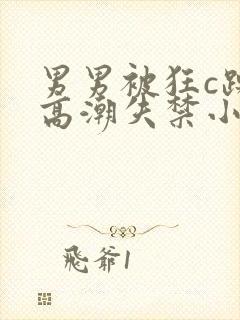 男男被狂c躁
高潮失禁小
飛爺1